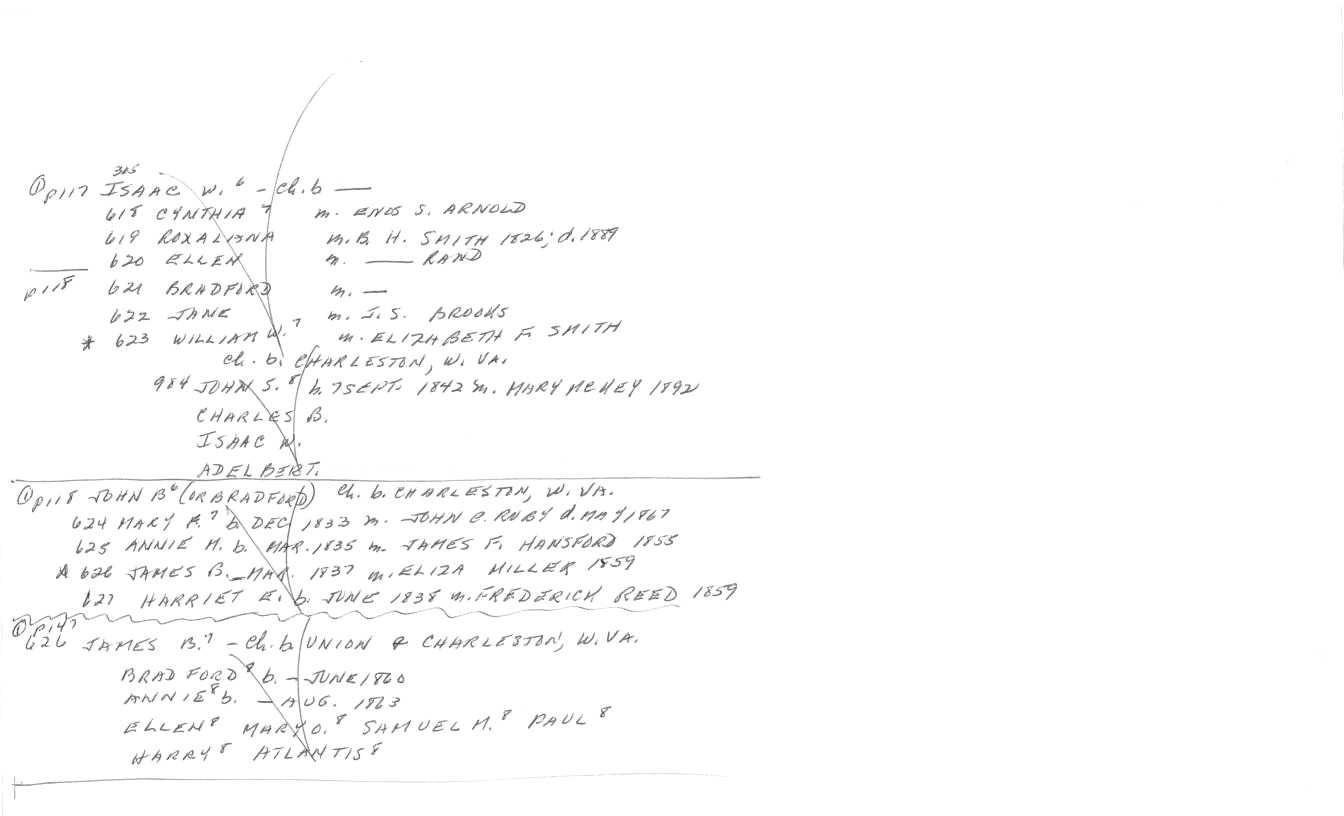 305
① p117 ISAAC W.⁶ - ch. b —
618 CYNTHIA⁷ m. ENOS S. ARNOLD
619 ROXALINA m. B. H. SMITH 1826; d. 1889
620 ELLEN m. — RAND
p118 621 BRADFORD m. —
622 JANE m. J. S. BROOKS
* 623 WILLIAM W.⁷ m. ELIZABETH F. SMITH
ch. b. CHARLESTON, W. VA.
984 JOHN S.⁸ b. 7 SEPT. 1842 m. MARY 1892
CHARLES B.
ISAAC W.
ADELBERT.
① p118 JOHN B⁶ (OR BRADFORD) ch. b. CHARLESTON, W. VA.
624 MARY F.⁷ b. DEC 1833 m. JOHN C. RUBY d. MAY 1867
625 ANNIE M. b. MAR. 1835 m. JAMES F. HANSFORD 1855
* 626 JAMES B. - MAR. 1837 m. ELIZA MILLER 1859
627 HARRIET E. b. JUNE 1838 m. FREDERICK REED 1859
① p147
626 JAMES B.⁷ - ch. b UNION & CHARLESTON, W. VA.
BRADFORD⁸ b. - JUNE 1860
ANNIE⁸ b. - AUG. 1863
ELLEN⁸ MARY O.⁸ SAMUEL M.⁸ PAUL⁸
HARRY⁸ ATLANTIS⁸